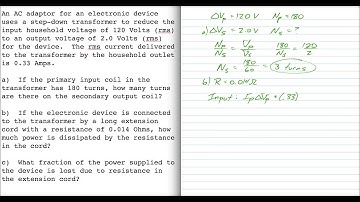 An AC adaptor for an electronic device
uses a step-down transformer to reduce the
input household voltage of 120 Volts (rms)
to an output voltage of 2.0 Volts (rms)
for the device. The rms current delivered
to the transformer by the household outlet
is 0.33 Amps.
a) If the primary input coil in the
transformer has 180 turns, how many turns
are there on the secondary output coil?
b) If the electronic device is connected
to the transformer by a long extension
cord with a resistance of 0.014 Ohms, how
much power is dissipated by the resistance
in the cord?
c) What fraction of the power supplied to
the device is lost due to resistance in
the extension cord?
ΔVp = 120 V Np = 180
a) ΔVs = 2.0 V Ns = ?
Np/Ns = Vp/Vs 180/Ns = 120/2
Ns = 180/60 = 3 turns
b) R = 0.014Ω
Input: IpΔVp = (.33)